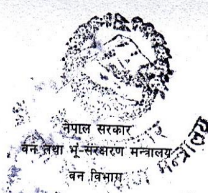 नेपाल सरकार
वन तथा भू-संरक्षण मन्त्रालय
वन विभाग
मन्त्रालय